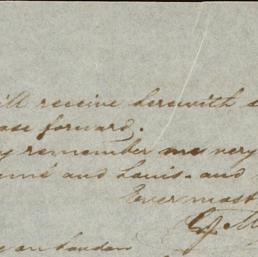 ill receive herewith
ase forward.
y remember me very
and Louis - and
Ever most